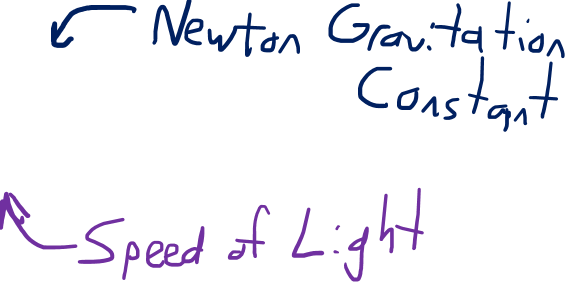 Newton Gravitation
Constant
Speed of Light